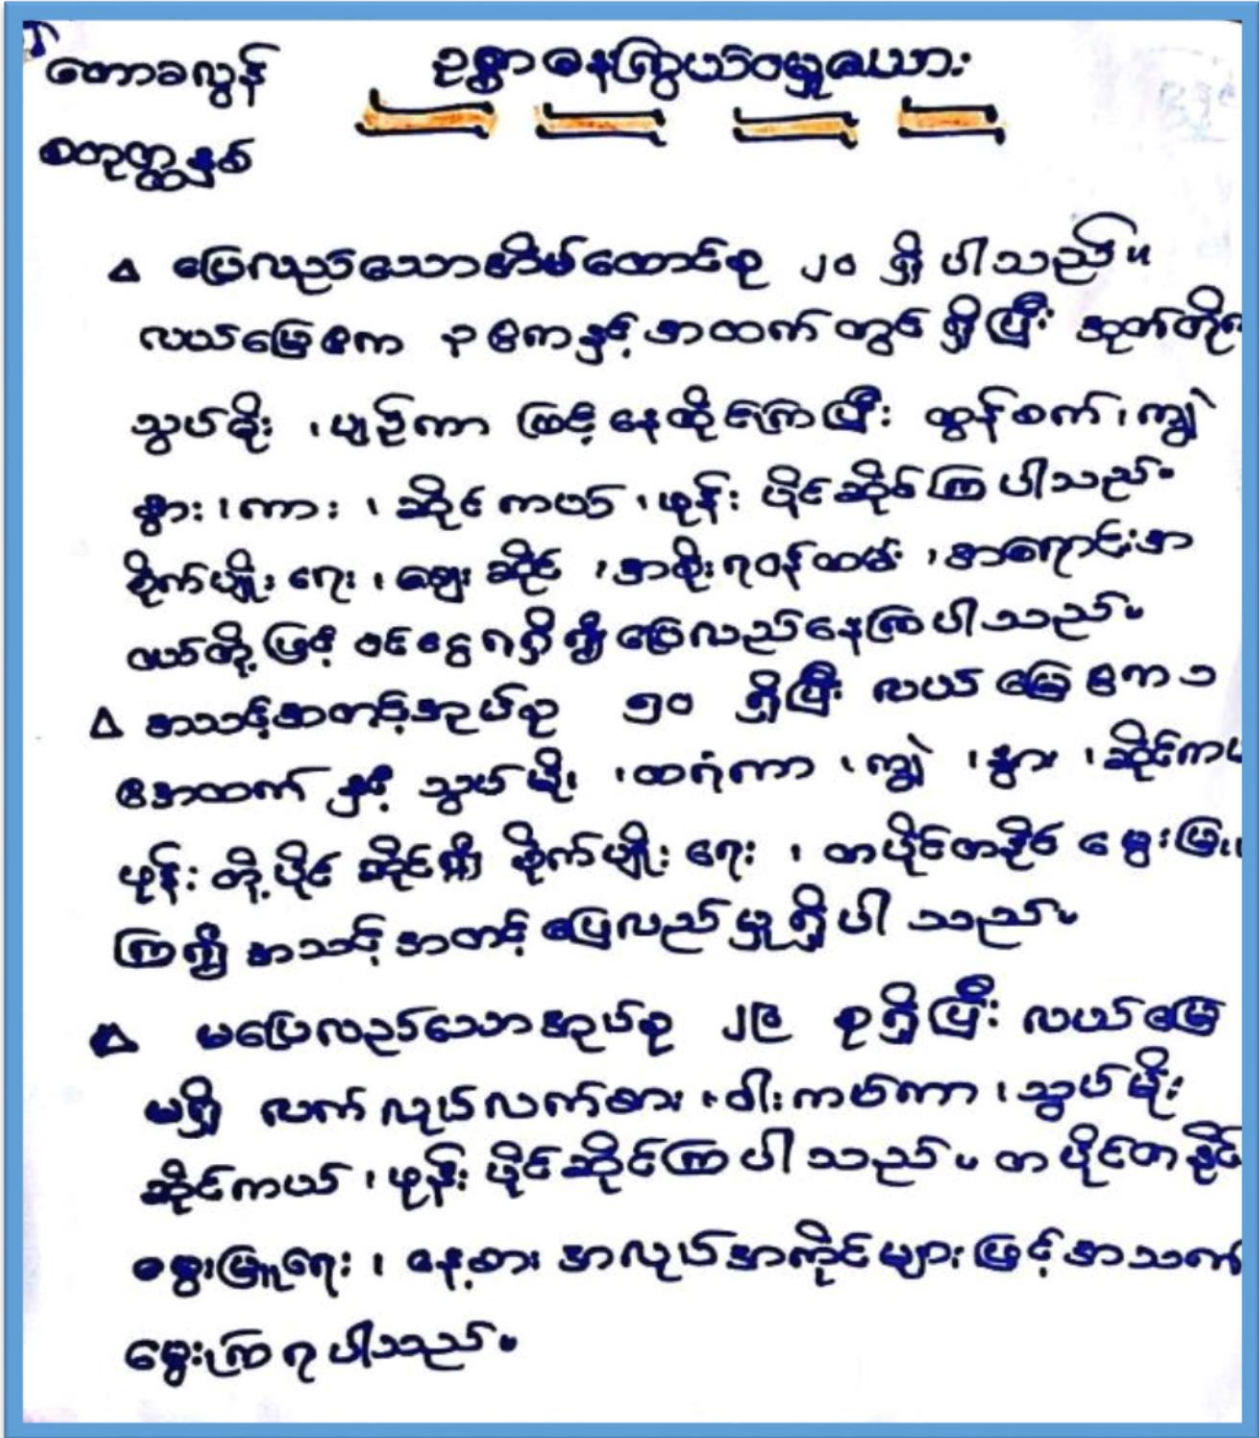 တောခလွန် ဥစ္စာဓနကြွယ်ဝမှုဇယား
စတုတ္ထနှစ်
ပြေလည်သောအိမ်ထောင်စု ၂၀ ရှိပါသည်။
လယ်မြေဧက ၃ ဧကနှင့်အထက်တွင်ရှိပြီး အုတ်တိုက်
သွပ်မိုး ၊ ပျဉ်ကာ ဖြင့်နေထိုင်ကြပြီး ထွန်စက် ၊ ကျွဲ
နွား ၊ ကား ၊ ဆိုင်ကယ် ၊ ဖုန်း ပိုင်ဆိုင်ကြပါသည်။
စိုက်ပျိုးရေး ၊ ဈေးဆိုင် ၊ အစိုးရဝန်ထမ်း ၊ အရောင်းအ
ဝယ်တို့ဖြင့် ဝင်ငွေရရှိ၍ ပြေလည်နေကြပါသည်။
အသင့်အတင့်အုပ်စု ၅၀ ရှိပြီး လယ်မြေဧက ၁
ဧအထက်နှင့် သွပ်မိုး ၊ ထရံကာ ၊ ကျွဲ ၊ နွား ၊ ဆိုင်ကယ်
ဖုန်းတို့ပိုင်ဆိုင်၍ စိုက်ပျိုးရေး ၊ တပိုင်တနိုင် မွေးမြူ
ကြ၍ အသင့်အတင့်ပြေလည်မှုရှိပါသည်။
မပြေလည်သောအုပ်စု ၂၉ စုရှိပြီး လယ်မြေ
မရှိ လက်လုပ်လက်စား ၊ ဝါးကပ်ကာ ၊ သွပ်မိုး
ဆိုင်ကယ် ၊ ဖုန်း ပိုင်ဆိုင်ကြပါသည်။ တပိုင်တနိုင်
မွေးမြူရေး ၊ နေ့စား အလုပ်အကိုင်များဖြင့်အသက်
မွေးကြရပါသည်။